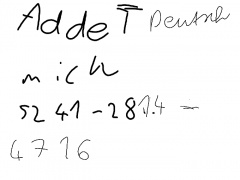 AddeT Deutsch
mich
5241-281.4-
4716